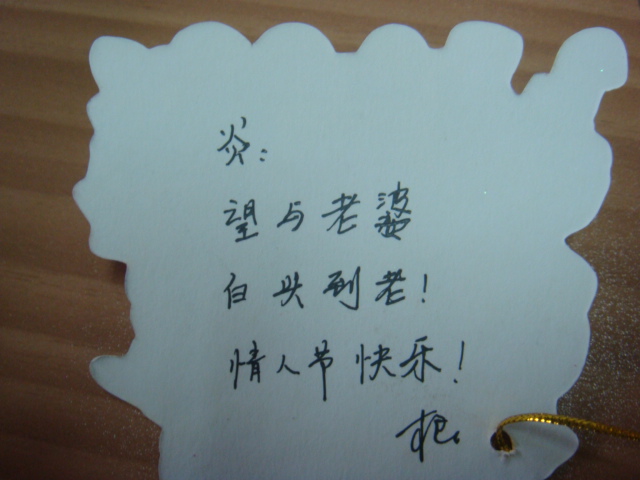 望与老婆
白头到老!
情人节快乐!